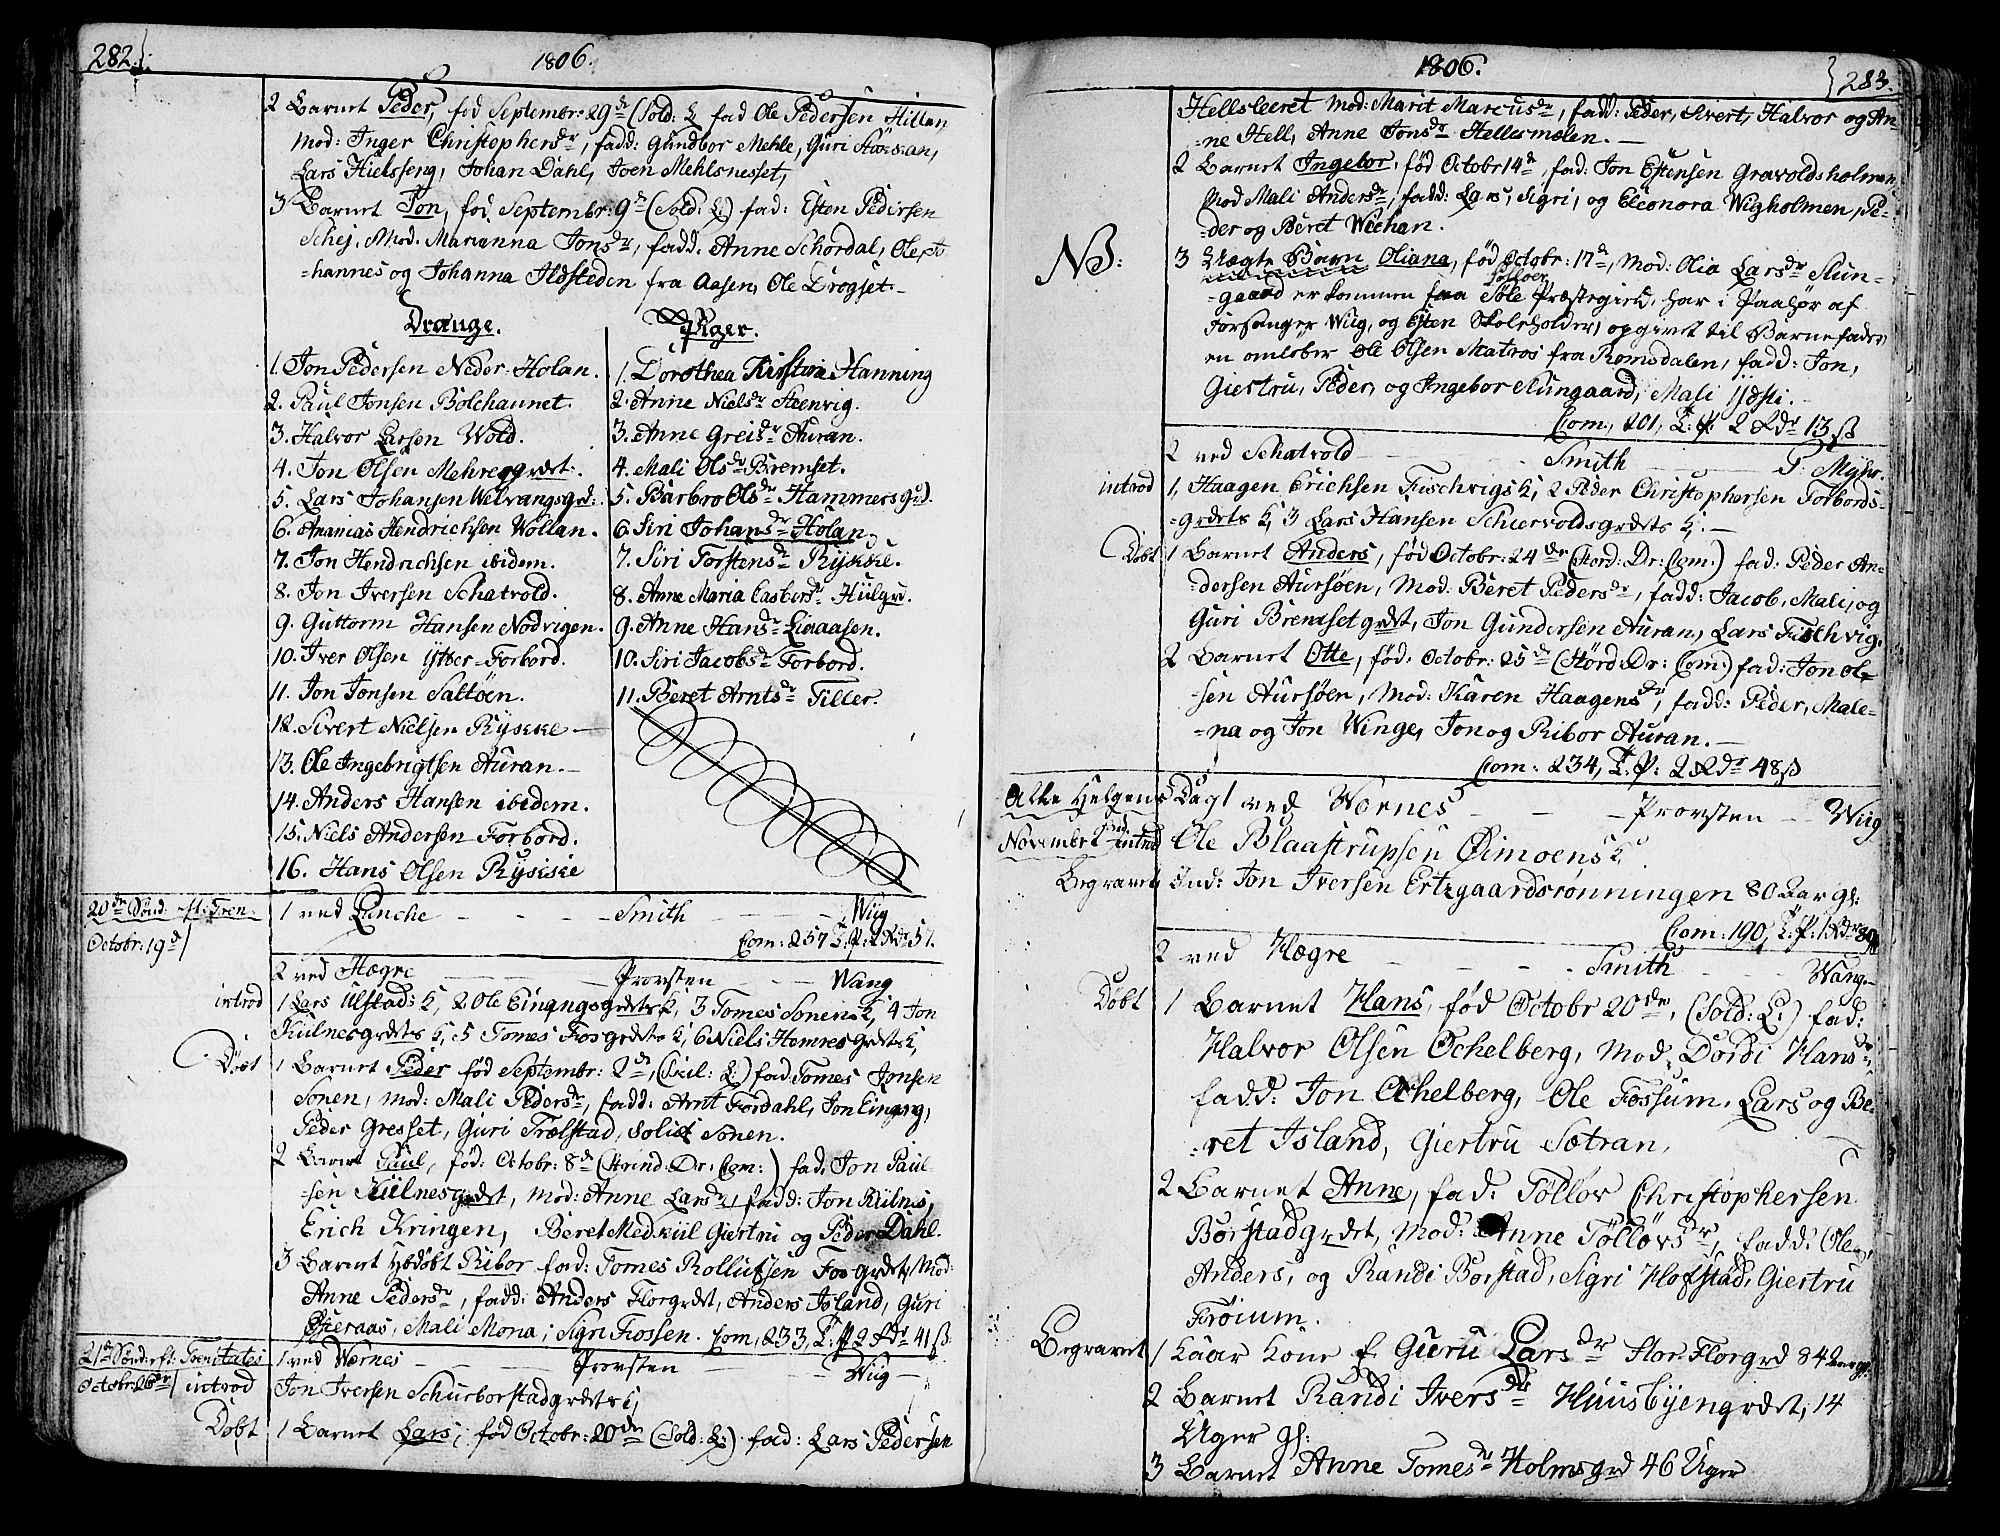 282.
1806.
2 Barnet Peder, fød Septembr: 29de (Sold: L. fad Ole Pedersen Hillan
Mod: Inger Christophersdr, fadd: Gundbor Mehle, Guri
Lars Hielsseng, Johan Dahl, Joen Mehlsnesset,
3 Barnet Jon, fød Septembr: 9de (Sold: L.) fad: Esten Pedersen
Schej, Mod. Marianna Jonsdr, fadd: Anne Schordal, Ole, Jo-
-hannes og Johanna Ildsteden fra Aasen, Ole Drogset.-
Drænge.
1. Jon Pedersen Neder-Holan.
2. Paul Jonsen Bolchaunet.
3. Halvor Larsen Wold.
4. Jon Olsen Mehre grdet.
5. Lars Johansen Welvangsgrd:
6. Ananias Hendrichsen Wollan.
7. Jon Hendrichsen ibidem.
8. Jon Iversen Schatvold.
9. Guttorm Hansen Nodvigen.
10. Iver Olsen Ytter-Forbord.
11. Jon Jonsen Saltøen.
12. Sivert Nielsen Rÿskke
13. Ole Ingebrigtsen Auran.-
14. Anders Hansen ibidem.
15. Niels Andersen Forbord.
16. Hans Olsen Rÿskke
Piger.
1. Dorothea Kirstina Hanning
2. Anne Nielsdr Steenvig.
3. Anne Greisdr Auran.
4. Mali Olsdr Bremset.
5. Barbro Olsdr Hammersgrd.
6. Siri Johansdr Holan
7. Siri Torstensdr Rÿskke.
8. Anne Maria Casbersdr Hülgrd.
9. Anne Hansdr Livaasen.
10. Siri Jacobsdr Forbord.
11. Beret Arntsdr Tiller.
20de Sønd. eft: Tren.
Octobr: 19de
1 ved Lanche - - - Smith - - - Wiig
Com: 257 T. P: 2 Rdr 57.
2 ved Hægre - - - Provsten - - - Wang
introd 1 Lars Ulstad: K, 2 Ole Eingngsgrdets K, 3 Tomes Sonens K, 4 Jon
Kulnesgrdets K, 5 Tomes Fosgrdets K, 6 Niels Hemresgrdets K,
Døbt 1 Barnet Peder fød Septembr: 2de, (Civil: L.) fad: Tomes Jonsen
Sonen, Mod: Mali Pedersdr, fadd: Arnt Fordahl, Jon Eingng,
Peder Gresset, Guri Trælstad, Solict Sonen.
2 Barnet Paul, fød: Octobr: 8de (Strind: Dr: Com:) fad: Jon Paul-
-sen Kulnesgrdet, Mod: Anne Larsdr, fadd: Jon Kulnes,
Erich Kringen, Beret Medkiil Giertru og Peder Dahl.
3 Barnet Hiedøbt Ribor fad: Tomes Rollufsen Fosgrdet, Mod:
Anne Pedersdr, fadd: Anders Florgrdet, Anders Island, Guri
Øfieraas, Mali Mona, Sigri Fiossen. Com, 233, T. P. 2 Rdr 41 ß.
21de Sønd: eft: Trenitates 1 ved Wornes - - - Provsten - - - Wiig
Octobr: 26de introd Jon Iversen Schurborstadgrdets K,
Døbt 1 Barnet Lars, fød Octobr: 20de (Sold: L:) fad: Lars Pedersen
1806.
283.
Hellsleeret Mod: Marit Marcusdr, fadd: Peder, Sivert, Halvor og An-
-ne Hell, Anne Jonsdr Hellsmølen.-
2 Barnet Ingebor, fød Octobr 14de, fad: Jon Estensen Gravoldsholmen
Mod Mali Andersdr, fadd: Lars, Sigri, og Eleonora Wigholmen, Pe-
-der og Beret Wechan.
NB: 3 Uægte Barn Oliana, fød Octobr: 17de, Mod: Olia Larsdr Slun-
Solloer
-gaard er kommen fra Søle Præstegield, har i Paahør af
Forsanger Wiig, og Esten Skoleholder, opgivet til Barnefader,
en omløber Ole Olsen Matros fra Romsdalen, fadd: Jon,
Giertru, Peder, og Ingebor Slungaard, Mali
Com, 201, T. P. 2 Rdr 13 ß
2 ved Schatvold - - - Smith - - - P. Myhr.
introd 1, Haagen Erichsen Fischvigs K, 2 Peder Christophersen Forbords-
-grdets K, 3 Lars Hansen Schiervoldsgrdets K.-
Døbt 1 Barnet Anders, fød Octobr: 24de (Stord: Dr: Com:) fad: Peder An-
-dersen Aursøen, Mod: Beret Pedersdr, fadd: Jacob, Mali, og
Guri Bremsetgrdet, Jon Gundersen Auran, Lars Fischvig,
2 Barnet Otte, fød: Octobr: 25de (Størd: Dr: Com:) fad: Jon Ol-
-sen Aursøen, Mod: Karen Haagensdr, fadd: Peder, Male-
-na og Jon Winge, Jon og Ribor Auran.-
Com: 234, T. P: 2 Rdr 48 ß
Alle Helgens Dag 1 ved Wornes - - - Provsten - - Wiig
November 2 introd Ole Blaastrupsen Øimoens K
Begravet Ind: Jon Iversen Ertzgaardsrønningen 80 Aar gl:
Com: 190, T. P: 1 Rdr 80
2 ved Hægre - - - Smith - - - Wang.-
Døbt 1 Barnet Hans, fød Octobr 20de, (Sold: L:) fad:
Halvor Olsen Ochelberg, Mod, Dordi Hansdr,
fadd: Jon Ochelberg, Ole Fossum, Lars og Be-
-ret Island, Giertru Sætran,
2 Barnet Anne, fad: Tølløv Christophersen
Borstadgrdet, Mod: Anne Tølløvsdr, fadd: Ole,
Anders, og Randi Borstad, Sigri Hofstad, Giertru
Froium.
Begravet 1 Kaar Kone E. Guru Larsdr Stor-Florgrd 84 Aar gl:
2 Barnet Randi Iversdr Huusbÿengrdet, 14
Uger gl:
3 Barnet Anne Tomesdr Holmsgrd 46 Uger